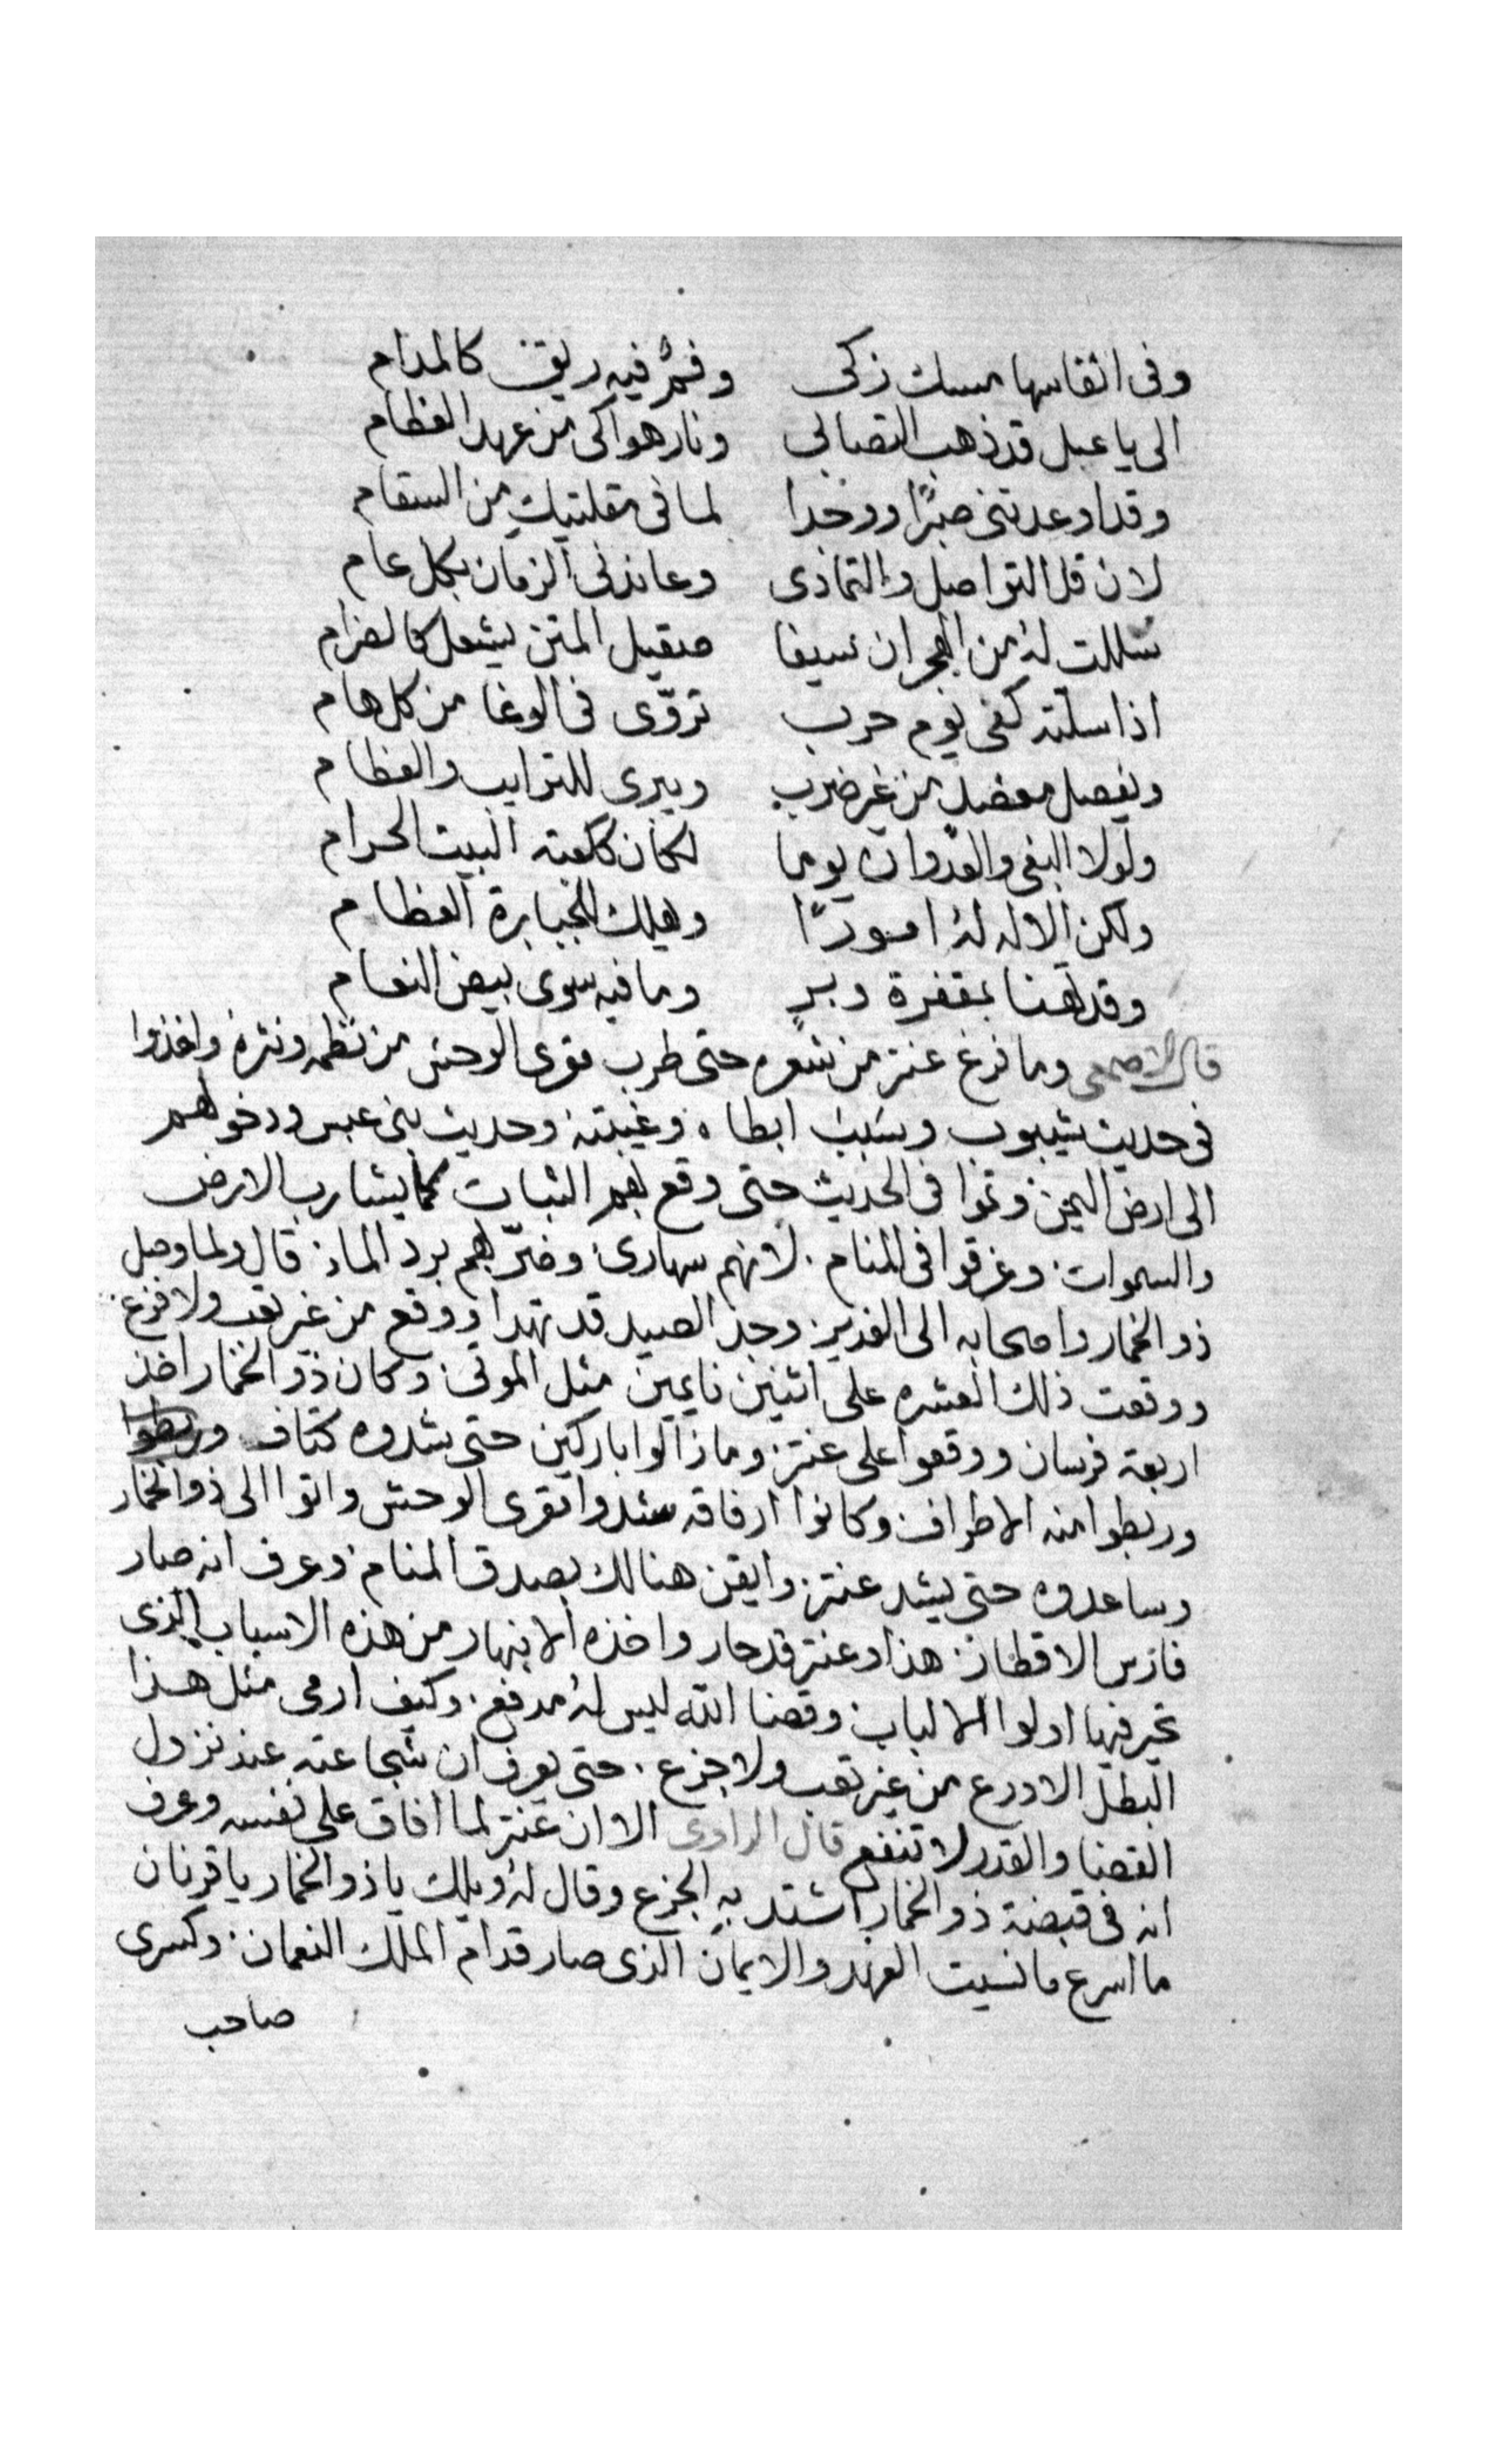 وفى انفاسها مسك زكى وفمٌ فيه ريق كالمدام
الى يا عبل قد ذهب التصابى ونار هواكى من عهد الفطام
وقد اوعدتنى صبرًا ووجدا لما فى مقلتيك من السقام
لان قل التواصل والتمادى وعاندنى الزمان بكل عام
سللت له من الهجران سيفا صقيل المتن يشعل كالضرام
اذا سلته كفى يوم حرب تروّى فى الوغا من كل هام
ويفصل مفصل من غير ضرب ويبرى للترايب والعظام
ولولا البغى والعدوان يوما لكان ككعبة البيت الحرام
ولكن الاله له امورًا وهلك الجبابرة العظام
وقد تهنا بمقفرة وبرٍ وما فيه سوى بيض النعام
قال الاصمعى وما فرغ عنتر من شعره حتى طرب مقرى الوحش من نظمه ونثره واخذوا
فى حديث شيبوب وسبب ابطاه وغيبته وحديث بنى عبس ودخولهم
الى ارض اليمن وتموا فى الحديث حتى وقع بهم الثبات كما يشا رب الارض
والسموات وغرقوا فى المنام لانهم سهارى وضرّ بهم برد الماء قال ولما وصل
ذو الخمار واصحابه الى الغدير وجد الصيد قد تهدا ووقع من غير تعب ولا فزع
ووقعت ذلك العشره على اثنين نايمين مثل الموتى وكان ذو الخمار اخذ
اربعة فرسان ووقعوا على عنتر وما زالوا باركين حتى شدوه كتاف وربطوا
وربطوا منه الاطراف وكانوا ارفاقه شدوا مقرى الوحش واتوا الى ذو الخمار
وساعدوه حتى يشد عنتر وايقن هنالك بصدق المنام وعرف انه صار
فارس الاقطار هذا وعنتر قد حار واخذه الانبهار من هذه الاسباب الذى
تحير فيها اولوا الالباب وقضا الله ليس له مدفع وكيف ارمى مثل هذا
البطل الادرع من غير تعب ولا جزع حتى يعرف ان شجاعته عند نزول
القضا والقدر لا تنفع قال الراوى الا ان عنتر لما افاق على نفسه وعرف
انه فى قبضة ذو الخمار اشتد به الجزع وقال له ويلك يا ذو الخمار يا قرنان
ما اسرع ما نسيت العهد والايمان الذى صار قدام الملك النعمان وكسرى
صاحب